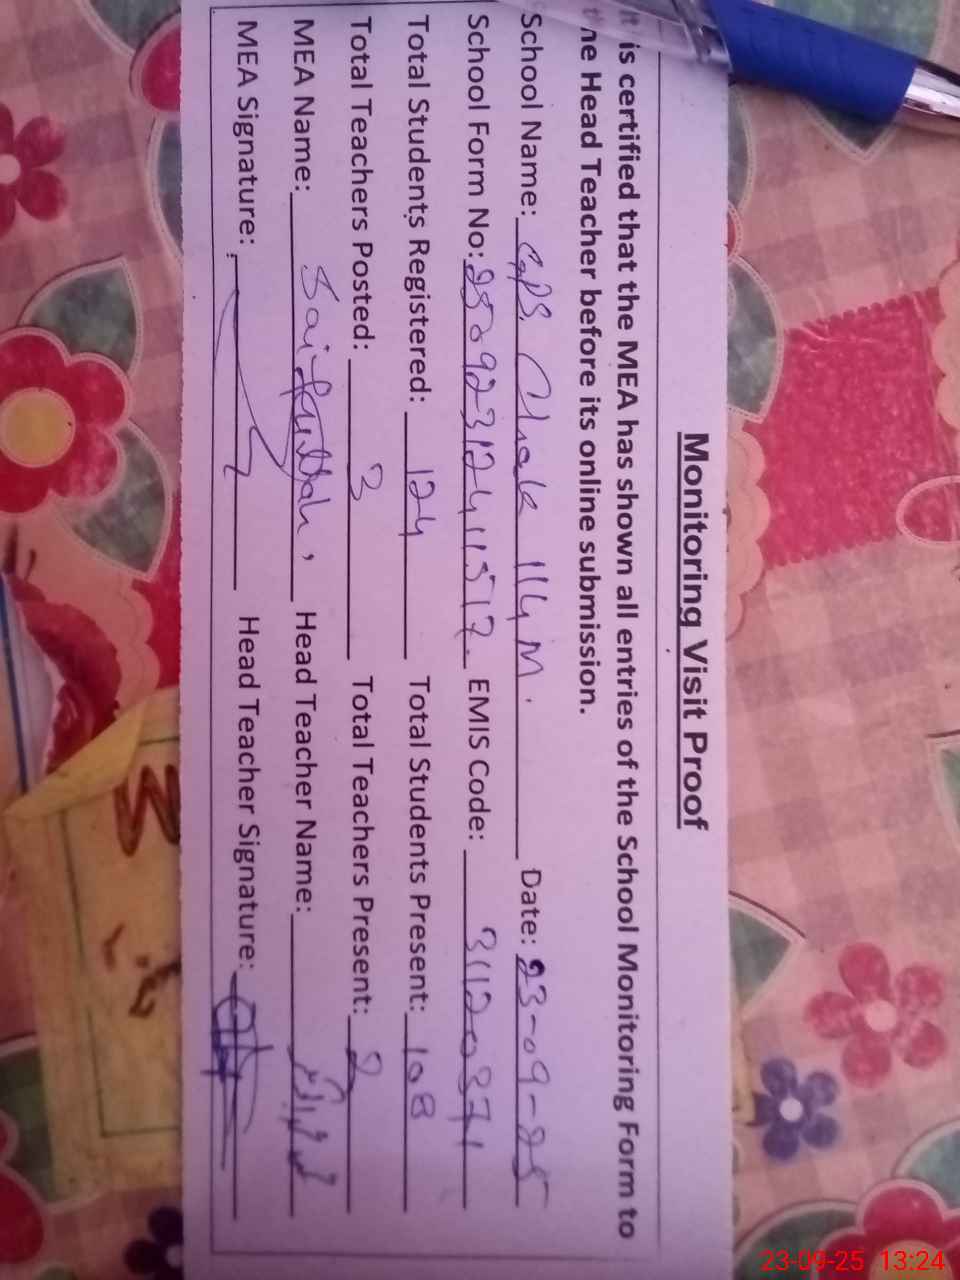 Monitoring Visit Proof
It is certified that the MEA has shown all entries of the School Monitoring Form to
the Head Teacher before its online submission.
School Name: GPS. Chak 114 M. Date: 23-09-25
School Form No: 25092312411517 EMIS Code: 31120371
Total Students Registered: 124 Total Students Present: 108
Total Teachers Posted: 3 Total Teachers Present: 2
MEA Name: Saifullah, Head Teacher Name:
MEA Signature: Head Teacher Signature:
23-09-25 13:24